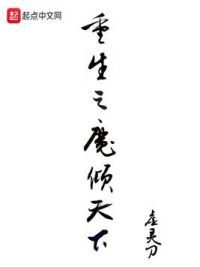 起点
起点中文网
重生之魔倾天下
虚灵刀